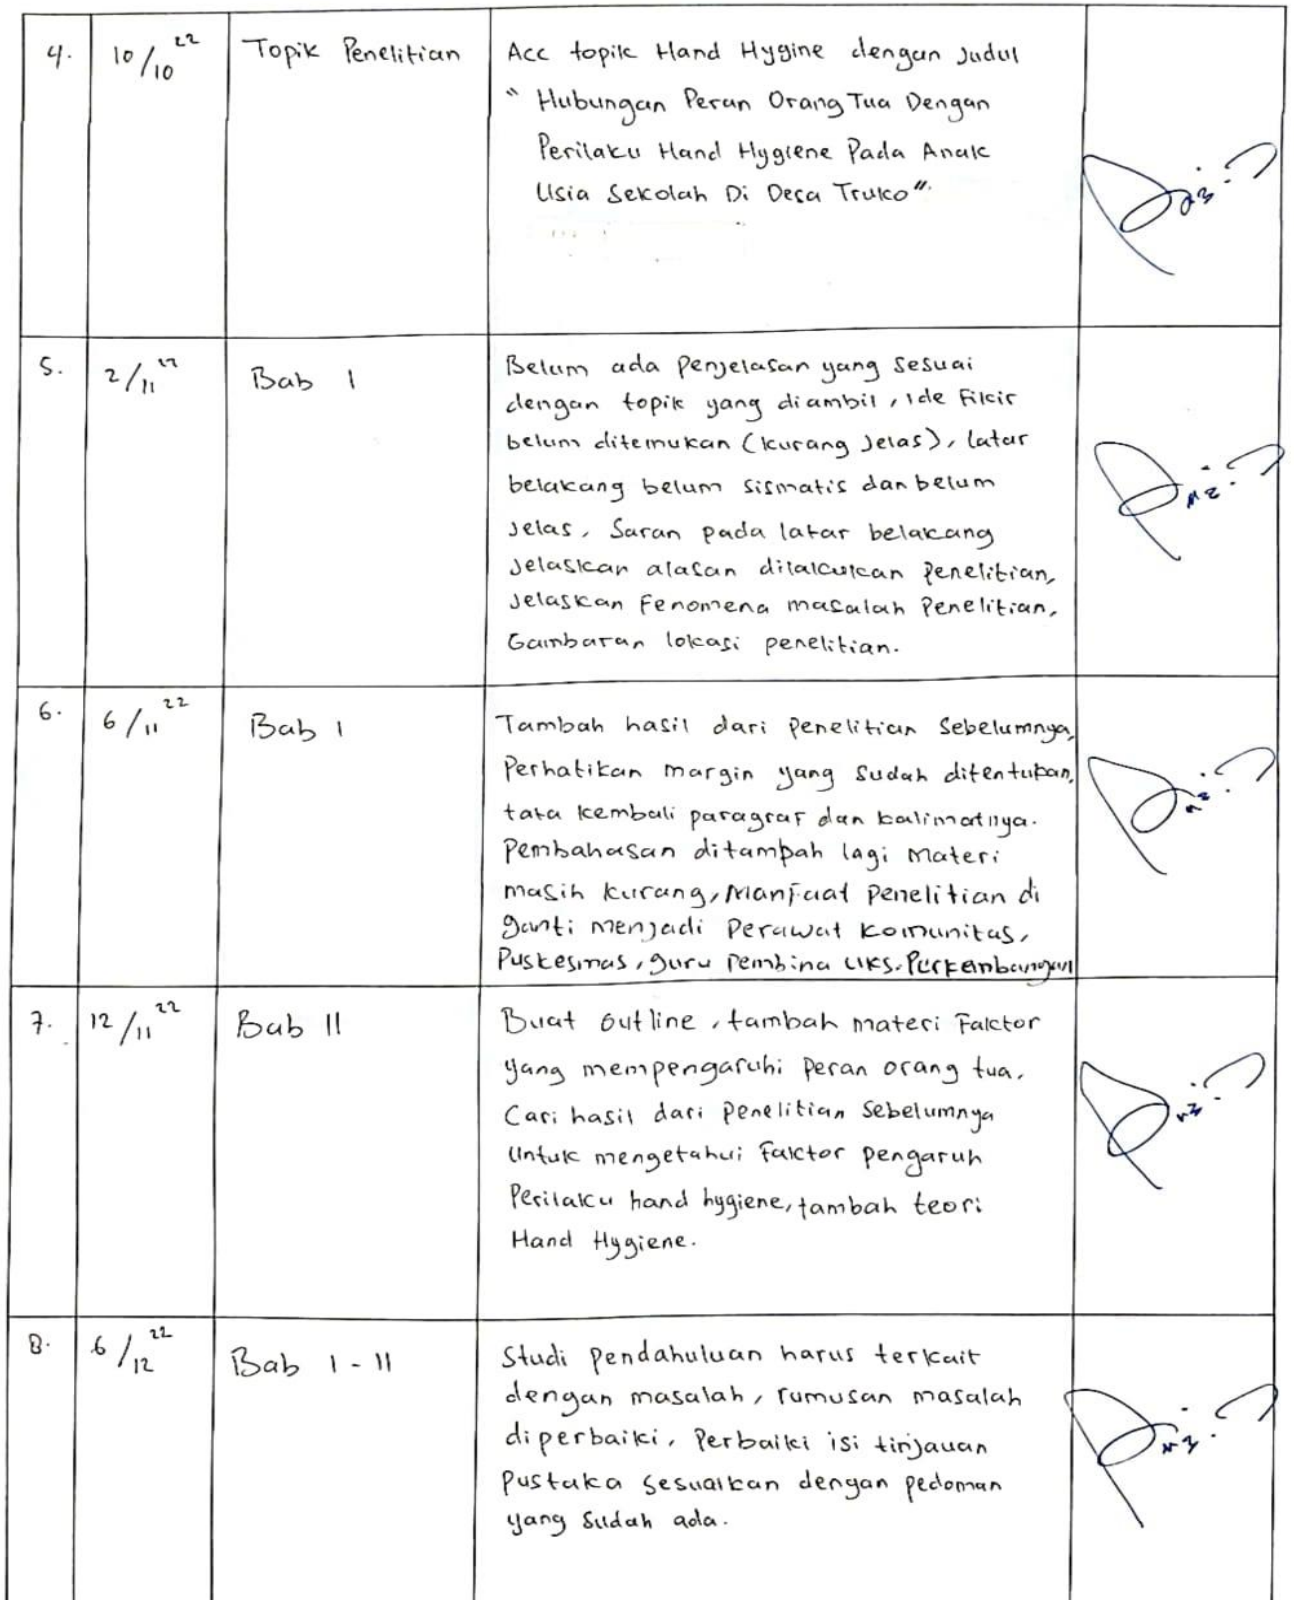 4. 10/10 22 Topik Penelitian Acc topik Hand Hygine dengan Judul
" Hubungan Peran Orang Tua Dengan
Perilaku Hand Hygiene Pada Anak
Usia Sekolah Di Desa Truko".
5. 2/11 22 Bab I Belum ada Penjelasan yang Sesuai
dengan topik yang diambil, ide Fikir
belum ditemukan (kurang Jelas), latar
belakang belum sismatis dan belum
Jelas, Saran pada latar belakang
Jelaskan alasan dilakukan Penelitian,
Jelaskan Fenomena masalah Penelitian,
Gambaran lokasi penelitian.
6. 6/11 22 Bab I Tambah hasil dari Penelitian Sebelumnya,
Perhatikan margin yang Sudah ditentukan,
tata kembali paragraf dan kalimatnya.
Pembahasan ditambah lagi Materi
masih kurang, Manfaat Penelitian di
ganti menjadi Perawat Komunitas,
Puskesmas, guru Pembina UKS. Perkembangan
7. 12/11 22 Bab II Buat Outline, tambah materi Faktor
yang mempengaruhi Peran orang tua,
Cari hasil dari Penelitian Sebelumnya
Untuk mengetahui Faktor pengaruh
Perilaku hand hygiene, tambah teori
Hand Hygiene.
8. 6/12 22 Bab I - II Studi Pendahuluan harus terkait
dengan masalah, rumusan masalah
diperbaiki, Perbaiki isi tinjauan
Pustaka Sesuaikan dengan pedoman
yang Sudah ada.